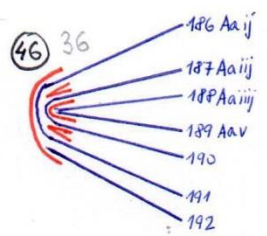 46 36
186 Aaij
187 Aaiij
188 Aaiiij
189 Aav
190
191
192